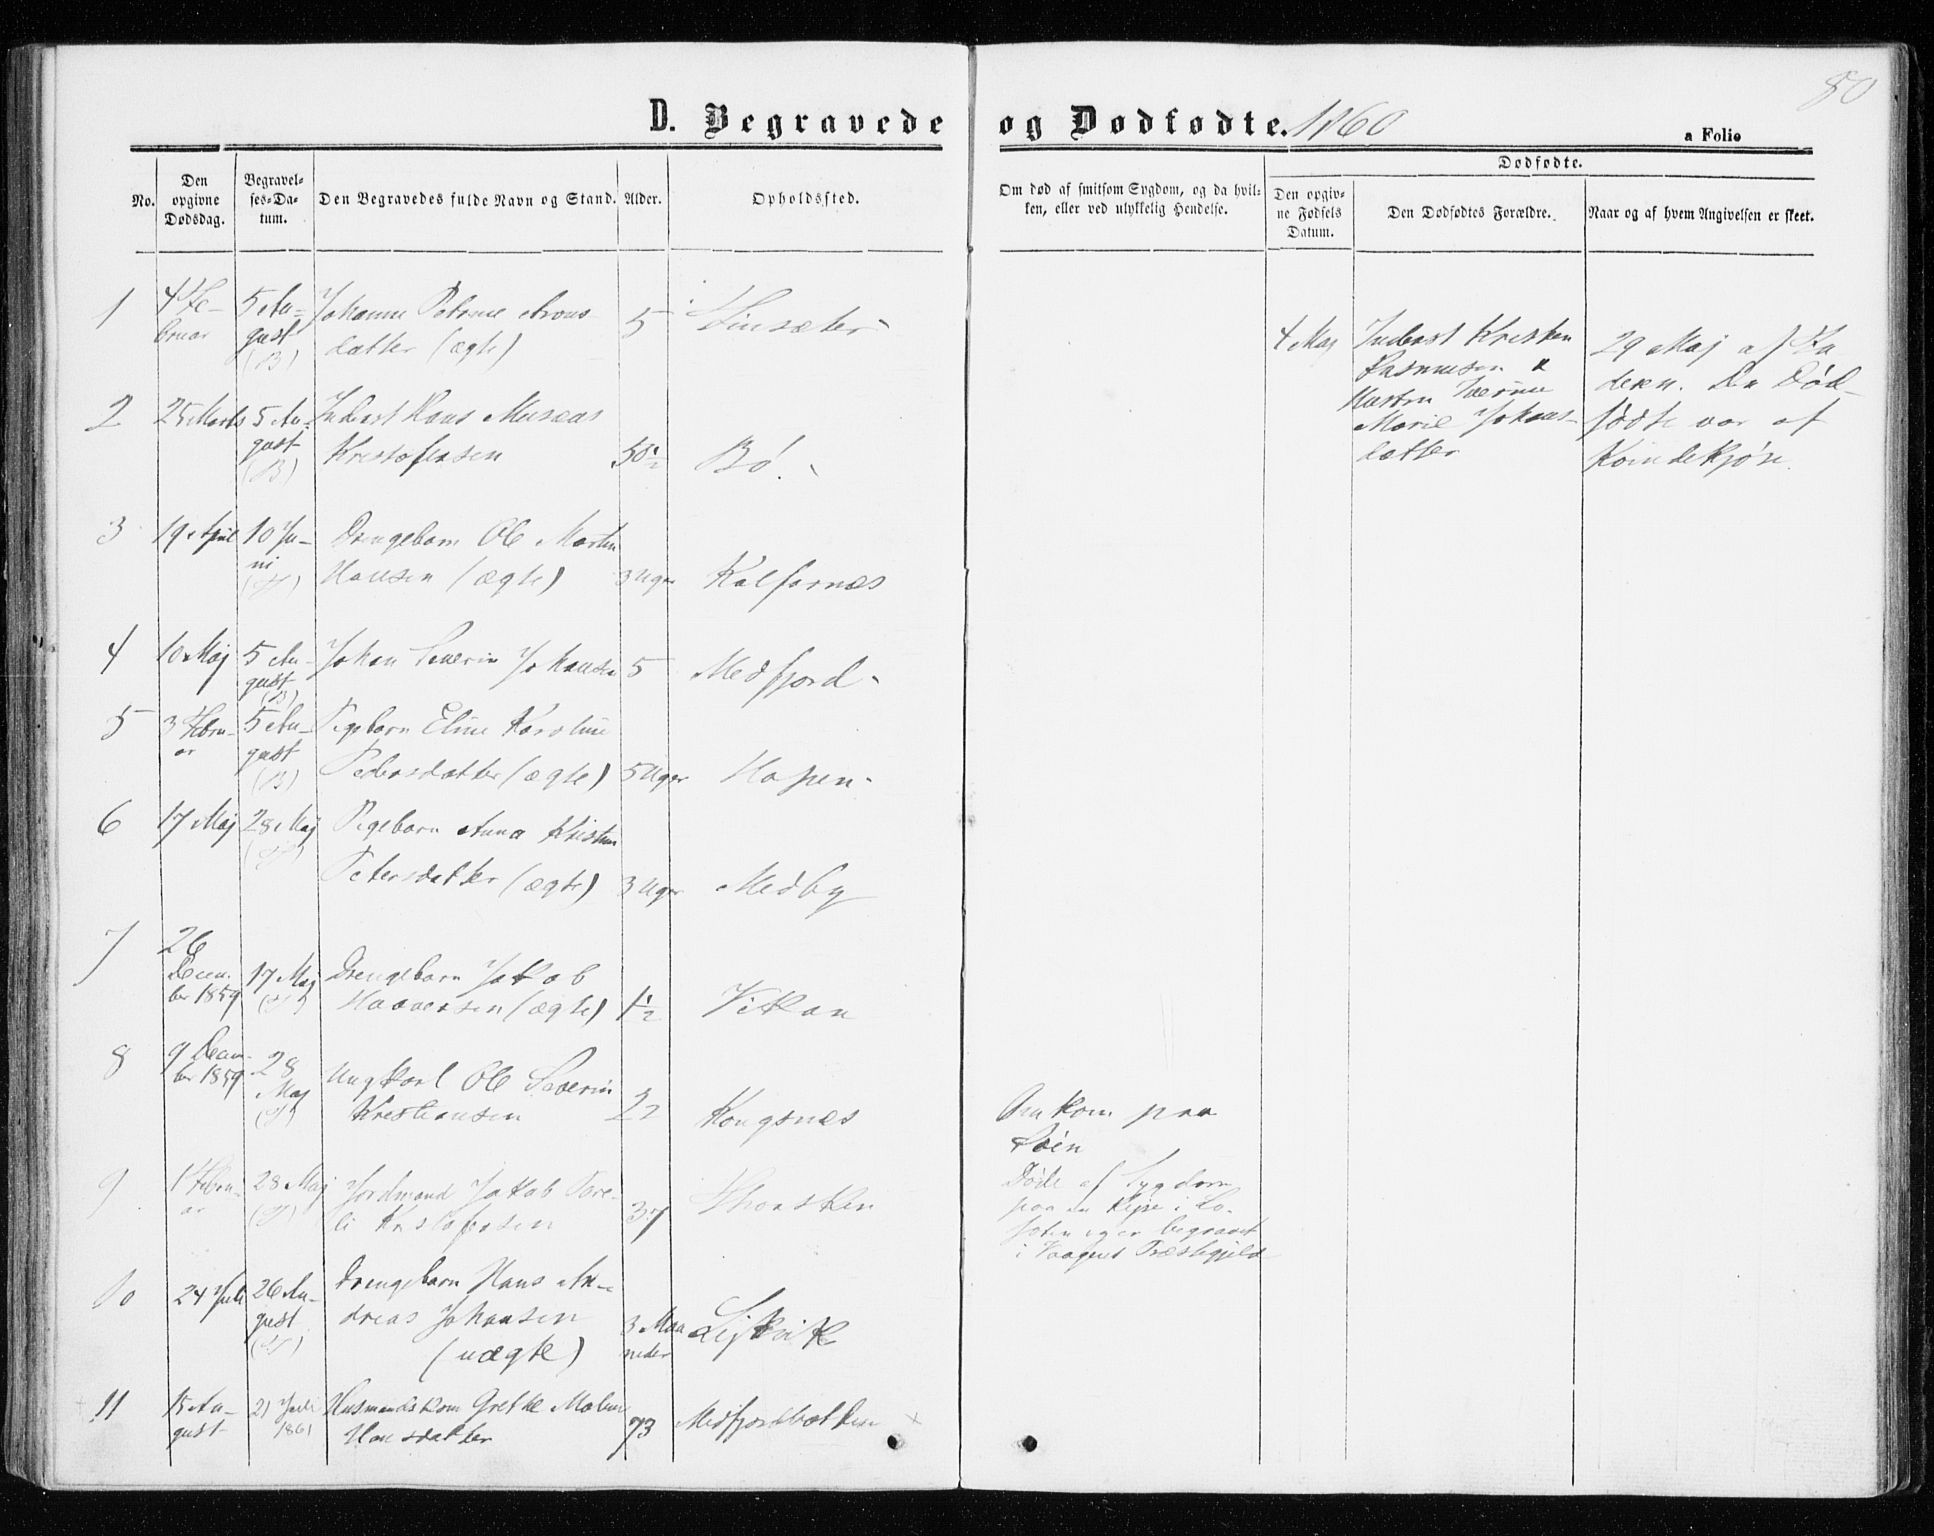 80
D. Begravede og Dødfødte. 1860
a Folio
No.
Den opgivne Dødsdag.
Begravel-
ses-Da-
tum.
Den Begravedes fulde Navn og Stand.
Alder.
Opholdssted.
Om død af smitsom Sygdom, og da hvil-
ken, eller ved ulykkelig Hendelse.
Dødfødte.
Den opgiv-
ne Fødsels
Datum.
Den Dødfødtes Forældre.
Naar og af hvem Angivelsen er skeet.
1 4 Fe- 5 Au- Johanne Petrine Arons
bruar gust datter (ægte) 5 Finsæter
(B)
4 Maj Inderst Kristen
Rasmusen &
Hustru
Marie Johans-
datter
29 Maj af Fa
deren. Den Død-
fødte var af
Kvindekjøn.
2 25 Marts 5 Au- Inderst Hans Museus
gust Kristofersen 50½ Bø.
(B)
3 19 April 10 Ju- Drengebarn Ole Martin
ni Hansen (ægte) 3 Uger Kalfarnæs
4 10 Maj 5 Au- Johan Severin Johansen 5 Medfjord
gust
(B)
5 3 Febru- 5 Au- Pigebarn Eline Karoline
ar gust Pedersdatter (ægte) 5 Uger Hopen
(B)
6 17 Maj 28 Maj Pigebarn Anna Kristine
Petersdatter (ægte) 3 Uger Medby
7 26
Decem- 17 Maj Drengebarn Jakob
ber 1859 Haaversen (ægte) 1½ Vikan
8 9 Decem- 28 Ungkarl Ole Severin
ber 1859 Maj Kristiansen 22 Kongsnæs
Omkom paa
Søen
9 1 Febru- 28 Maj Jordmand Jakob Tore-
ar li Kristofersen 37
Døde af Sygdom
paa en Rejse i Lo-
foten og er begravet
i Vaagens Præstegjeld
10 24 Juli 26 Au- Drengebarn Hans An-
gust dreas Johansen 3 Maa
(uægte) neder
11 15 Au- 21 Juli Husmandskone Grethe Malene
gust 1861 Hansdatter 73 Medfjordbotten